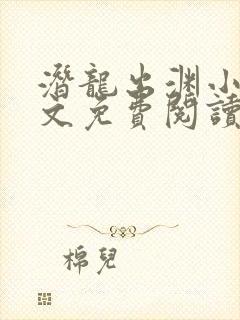 潛龍出淵小
文免費閱讀
棉兒